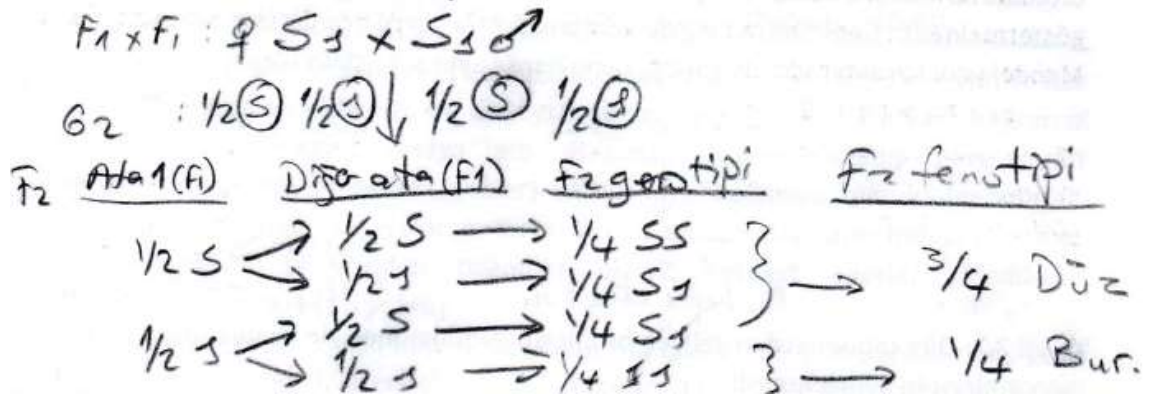 F1 x F1 : ♀ Ss x Ss ♂
G2 : 1/2 S 1/2 s ↓ 1/2 S 1/2 s
F2 Ata 1 (F1) Diğer ata (F1) F2 genotipi F2 fenotipi
1/2 S → 1/2 S → 1/4 SS
→ 1/2 s → 1/4 Ss } → 3/4 Düz
1/2 s → 1/2 S → 1/4 Ss
→ 1/2 s → 1/4 ss } → 1/4 Bur.